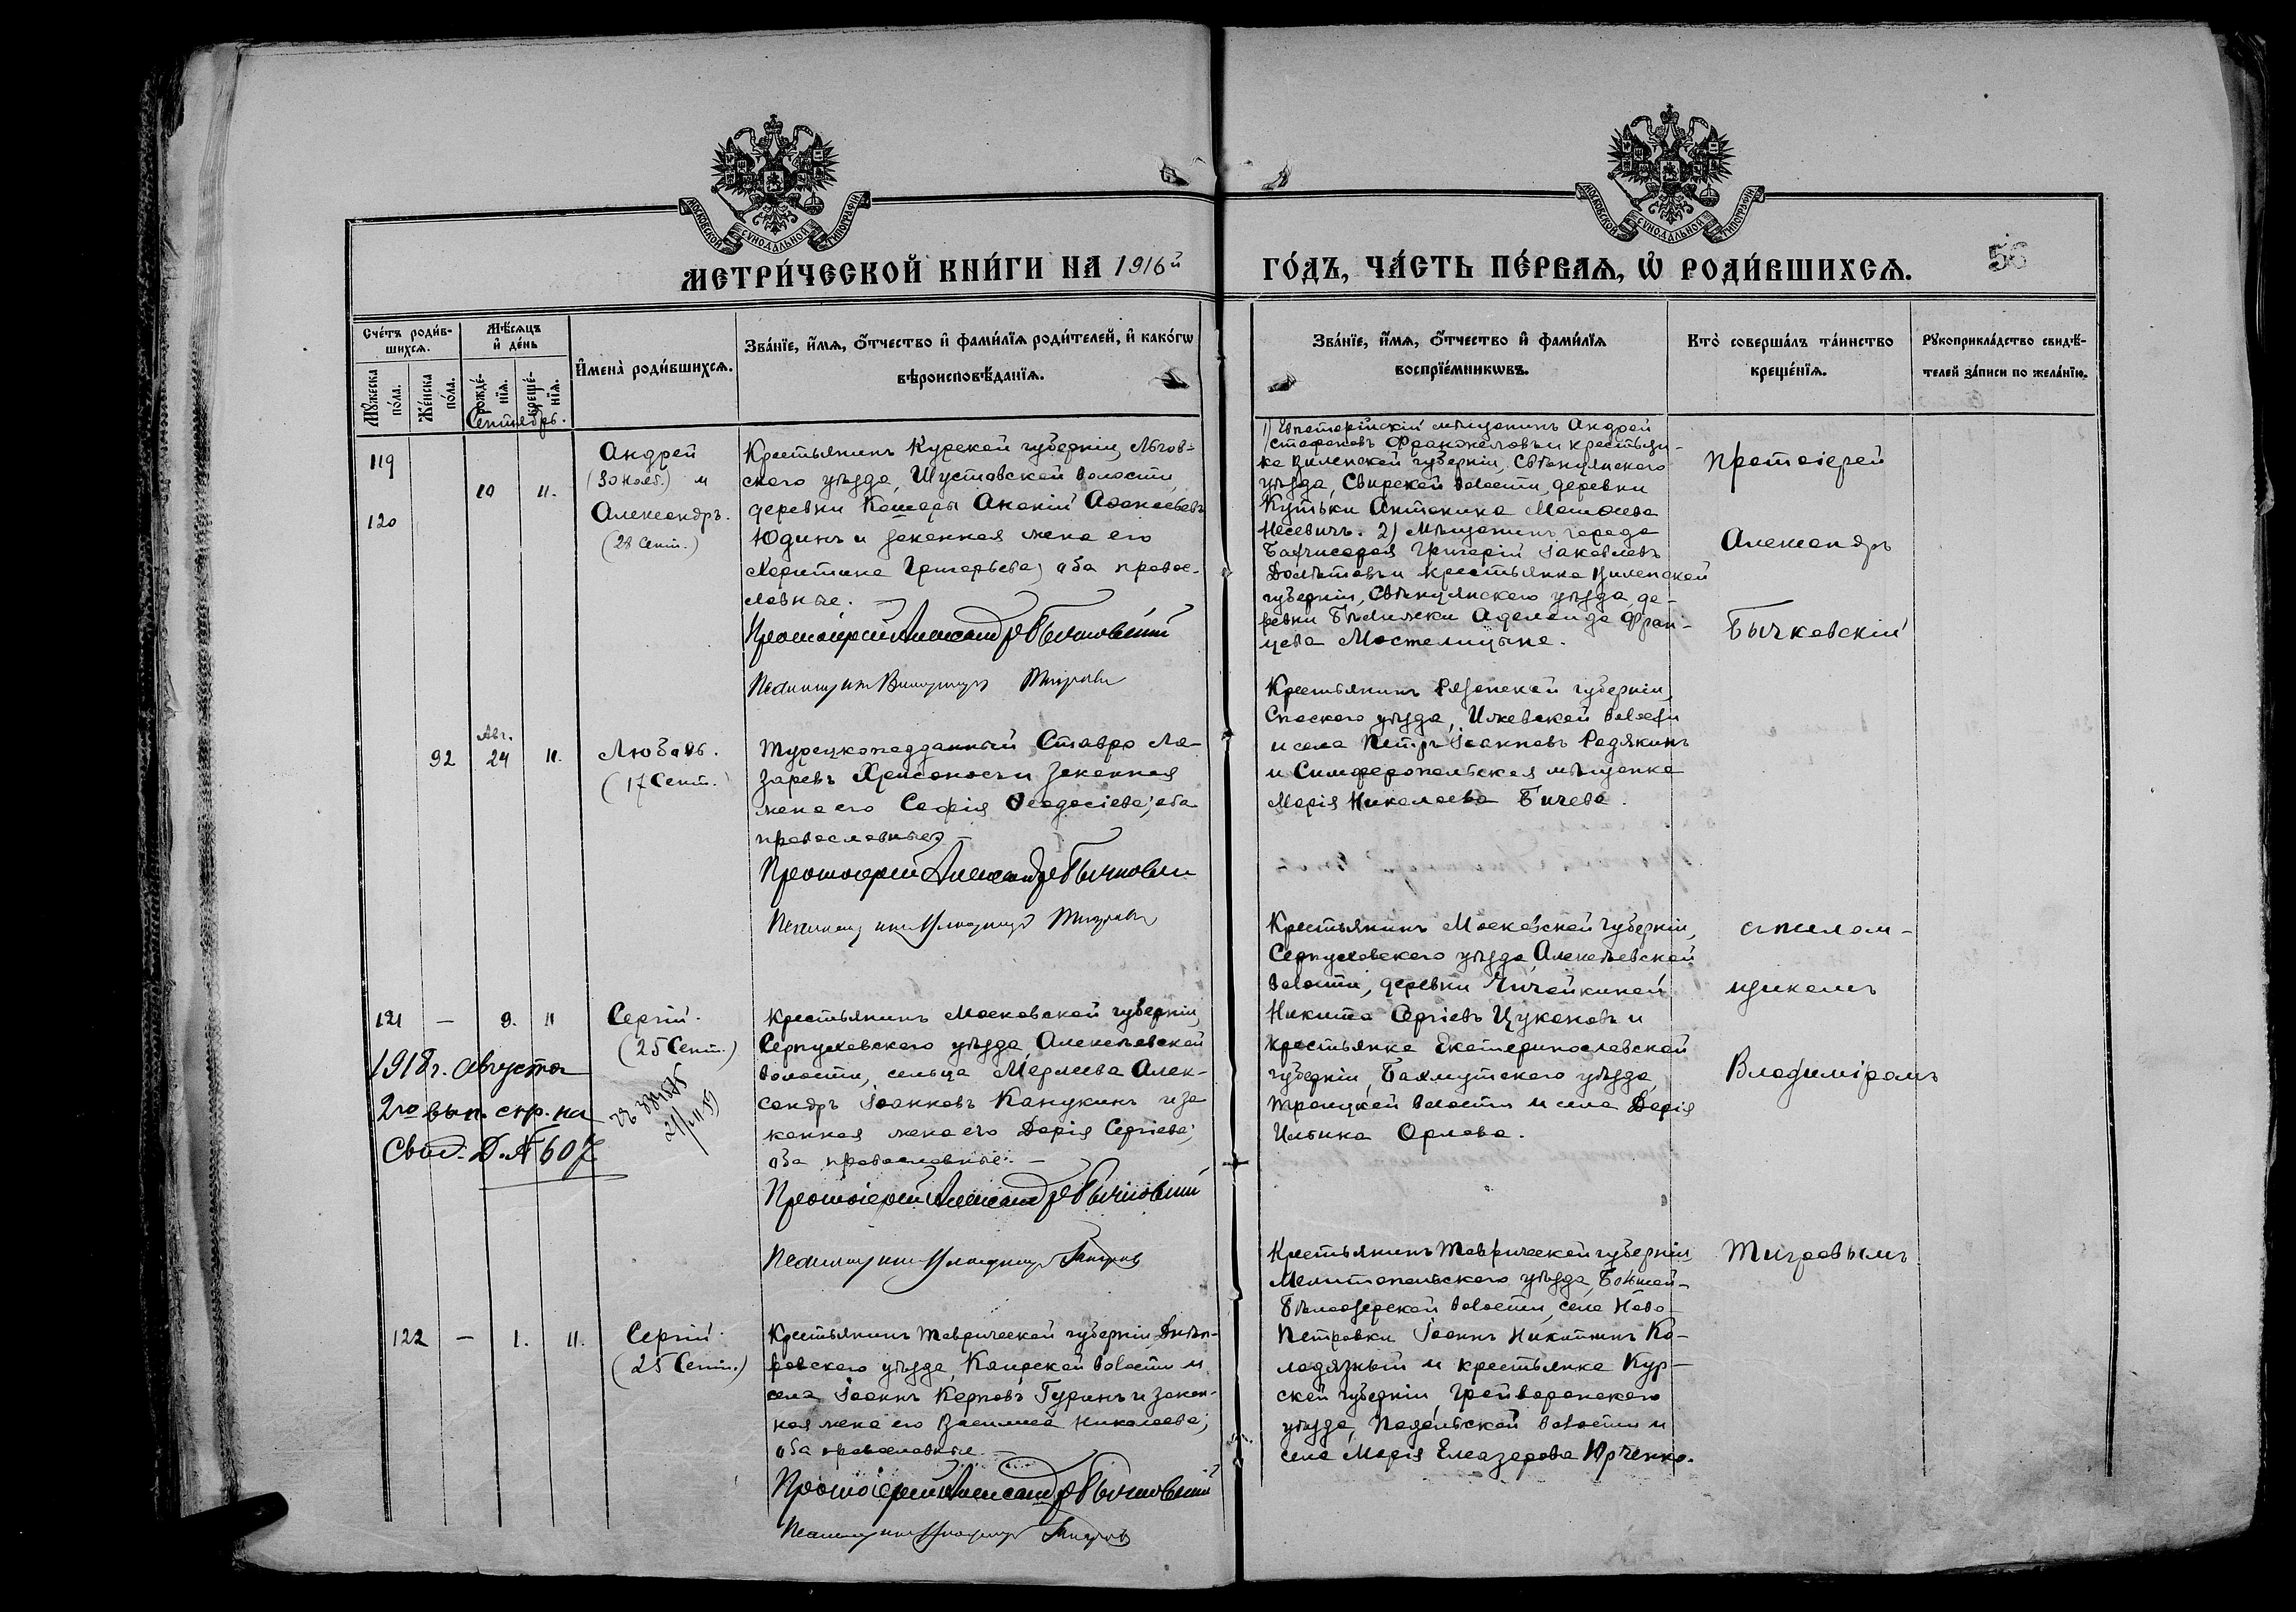 МОСКОВСКОЙ СѴНОДАЛЬНОЙ ТИПОГРАФІИ
МОСКОВСКОЙ СѴНОДАЛЬНОЙ ТИПОГРАФІИ
МЕТРИ́ЧЕСКОЙ КНИ́ГИ НА 1916й
ГО́ДЪ, ЧА́СТЬ ПЕ́РВАѦ, Ѡ҆ РОДИ́ВШИХСѦ.
56
Сче́тъ роди́в-
шихсѧ.
Мѣ́сѧцъ
и҆ де́нь
Мꙋ́жеска по́ла.
Же́нска по́ла.
рожде́-нїѧ.
креще́-нїѧ.
И҆мена̀ роди́вшихсѧ.
Зва́нїе, и҆́мѧ, ѻ҆́тчество и҆ фами́лїѧ роди́телей, и҆ како́гѡ
вѣроисповѣ́данїѧ.
Зва́нїе, и҆́мѧ, ѻ҆́тчество и҆ фами́лїѧ
воспрїе́мникѡвъ.
Кто̀ соверша́лъ та́инство
креще́нїѧ.
Рꙋкоприкла́дство свидѣ́-
телей за́писи по жела́нїю.
Сентябрь.
119
120
10
11.
Андрей
(30 нояб.) и
Александръ.
(28 Сент.)
Крестьянинъ Курской губерніи, Льгов-
скаго уѣзда, Шустовской волости,
деревни Кошары Ананій Аѳанасьевъ
Юдинъ и законная жена его
Харитина Григорьева; оба правос-
лавные. —
Протоіерей Александръ Бычковскій
Псаломщикъ Владиміръ Тигровъ
1) Евпаторійскій мѣщанинъ Андрей
Стефановъ и крестьян-
ка Виленской губерніи, Свѣнцянскаго
уѣзда, Свирской волости, деревни
Кутьки Антонина Матѳеева
Несевичъ. 2) Мѣщанинъ города
Бахчисарая Григорій Іаковлевъ
и крестьянка Виленской
губерніи, Свѣнцянскаго уѣзда, де-
ревни Аделаида Фран-
цева
Протоіерей
Александръ
Бычковскій
92
Авг.
24
11.
Любовь.
(17 Сент.)
Турецкоподданный Ставро Ла-
заревъ и законная
жена его Софія Ѳеодосіева; оба
православные. —
Протоіерей Александръ Бычковскій
Псаломщикъ Владиміръ Тигровъ
Крестьянинъ Рязанской губерніи,
Спаскаго уѣзда, Ижевской волости
и села Петръ Іоанновъ Родякинъ
и Симферопольская мѣщанка
Марія Николаева Бичева.
121
—
9.
11
Сергій.
(25 Сент.)
1918 г. Августа
2го вып. стр. на
Свид. Д. № 607
Крестьянинъ Московской губерніи,
Серпуховскаго уѣзда, Алексѣевской
волости, сельца Мерлеева Алек-
сандръ Іоанновъ Канукинъ и за-
конная жена его Дарія Сергіева;
оба православные. —
Протоіерей Александръ Бычковскій
Псаломщикъ Владиміръ Тигровъ
Крестьянинъ Московской губерніи,
Серпуховскаго уѣзда, Алексѣевской
волости, деревни
Никита Сергіевъ Цукановъ и
крестьянка Екатеринославской
губерніи, Бахмутскаго уѣзда,
Троицкой волости и села Дарія
Ильина Орлова.
съ псалом-
щикомъ
Владиміромъ
Тигровымъ
122
—
1.
11.
Сергій.
(25 Сент.)
Крестьянинъ Таврической губерніи, Днѣп-
ровскаго уѣзда, Каирской волости и
села Іоаннъ Карповъ Гуринъ и закон-
ная жена его Василиса Николаева;
оба православные. —
Протоіерей Александръ Бычковскій
Псаломщикъ Владиміръ Тигровъ
Крестьянинъ Таврической губерніи,
Мелитопольскаго уѣзда, Большой-
Бѣлозерской волости, села Ново-
Петровки Іоаннъ Никитинъ Ко-
лодязный и крестьянка Кур-
ской губерніи, Грайворонскаго
уѣзда, Подольской волости и
села Марія Елеазарова Юрченко.